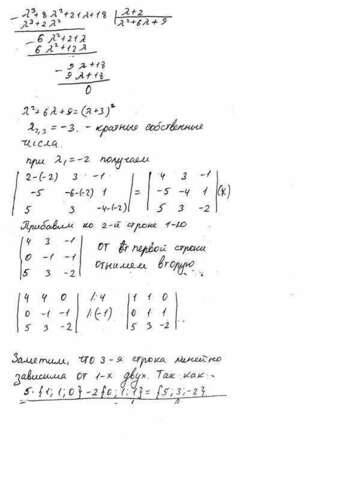 λ³+8λ²+21λ+18 | λ+2
λ³+2λ² | λ²+6λ+9
- 6λ²+21λ
6λ²+12λ
- 9λ+18
9λ+18
0
λ²+6λ+9=(λ+3)²
λ₂,₃=-3. - кратные собственные
числа.
при λ₁=-2 получаем
|2-(-2) 3 -1| = |4 3 -1|
|-5 -6-(-2) 1| = |-5 -4 1| (K)
|5 3 -4-(-2)| |5 3 -2|
Прибавим ко 2-й строке 1-ю
|4 3 -1|
|0 -1 -1| от первой строки
|5 3 -2| отнимем вторую
|4 4 0| |:4 |1 1 0|
|0 -1 -1| |:(-1) |0 1 1|
|5 3 -2| |5 3 -2|
Заметим, что 3-я строка линейно
зависима от 1-х двух. Так как:
5·{1; 1; 0} -2{0; 1; 1} = {5; 3; -2}